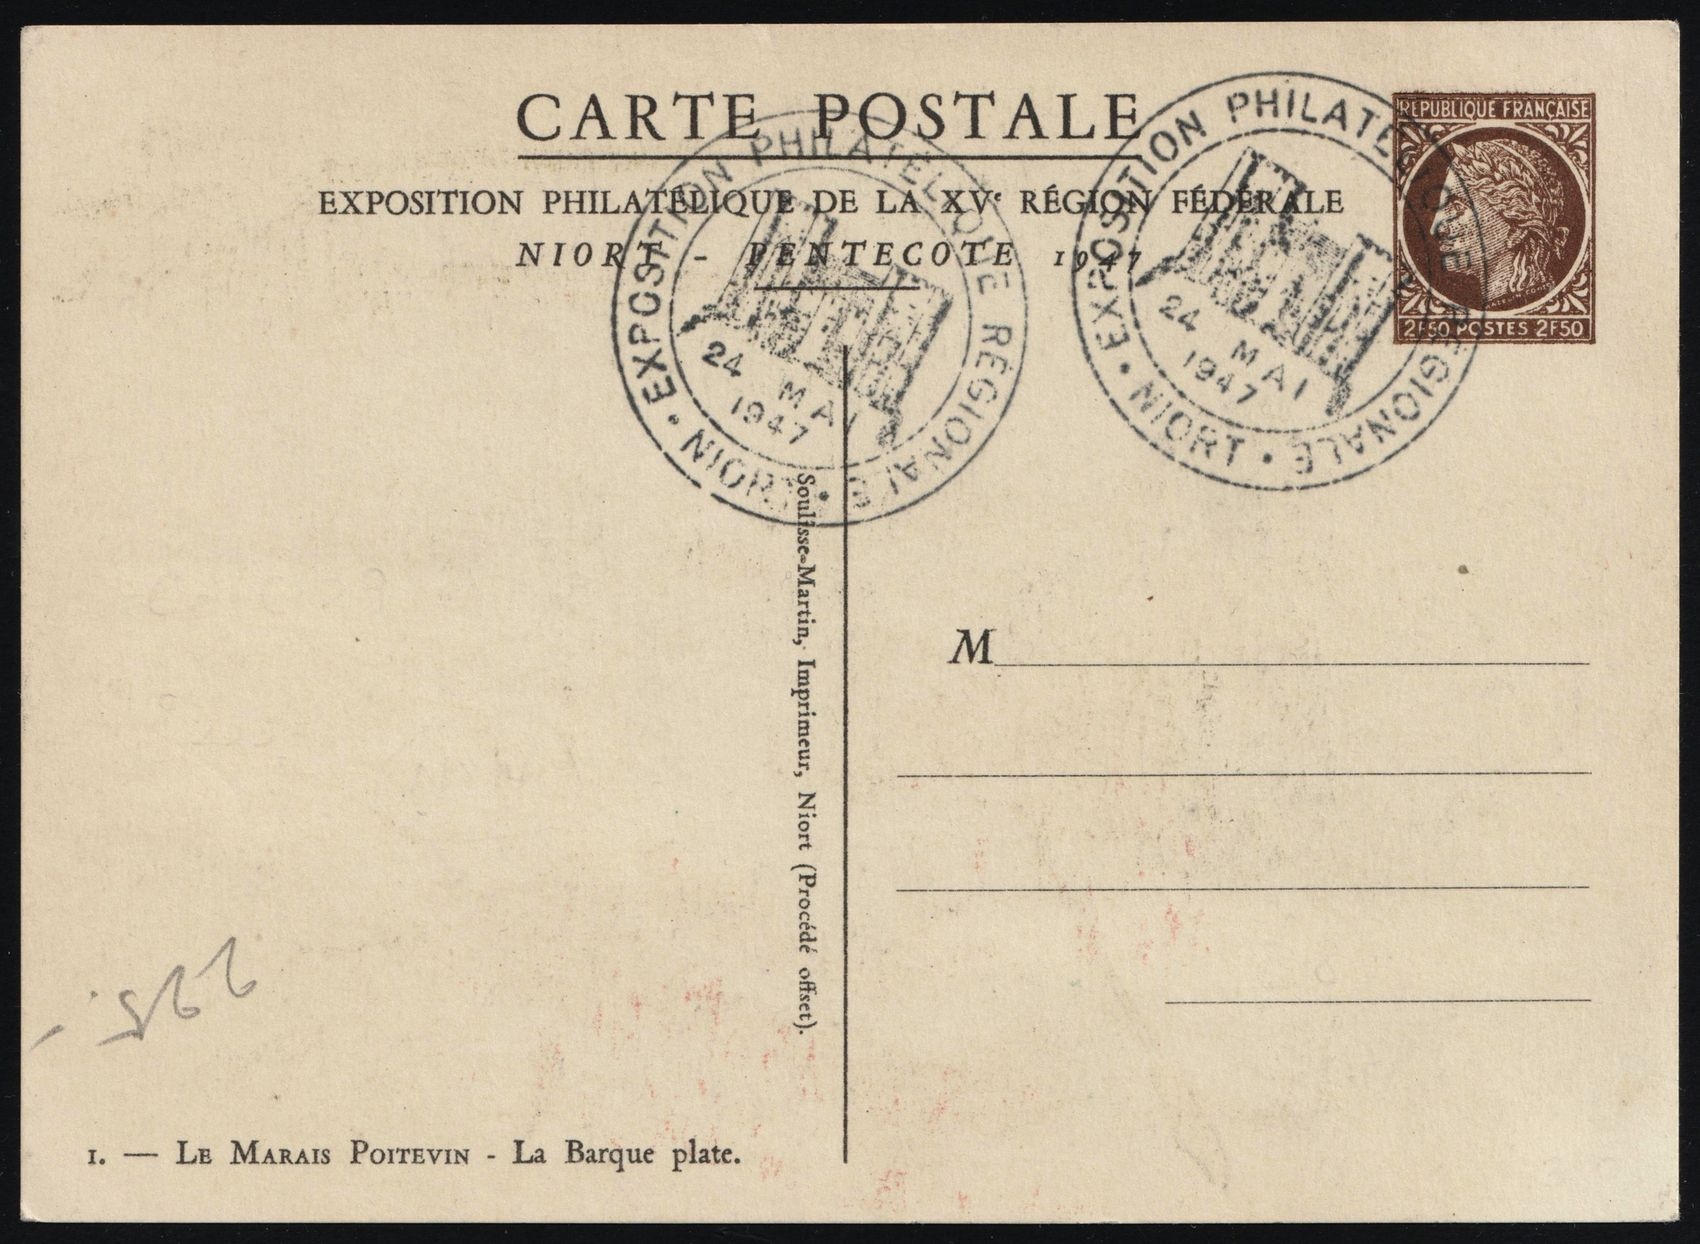 CARTE POSTALE
EXPOSITION PHILATÉLIQUE DE LA XVe RÉGION FÉDÉRALE
NIORT - PENTECOTE 1947
REPUBLIQUE FRANÇAISE
2F50 POSTES 2F50
EXPOSITION PHILATELIQUE RÉGIONALE • NIORT •
24 MAI
1947
EXPOSITION PHILATELIQUE RÉGIONALE • NIORT •
24 MAI
1947
Soulisse-Martin, Imprimeur, Niort (Procédé offset).
M
1. — LE MARAIS POITEVIN - La Barque plate.